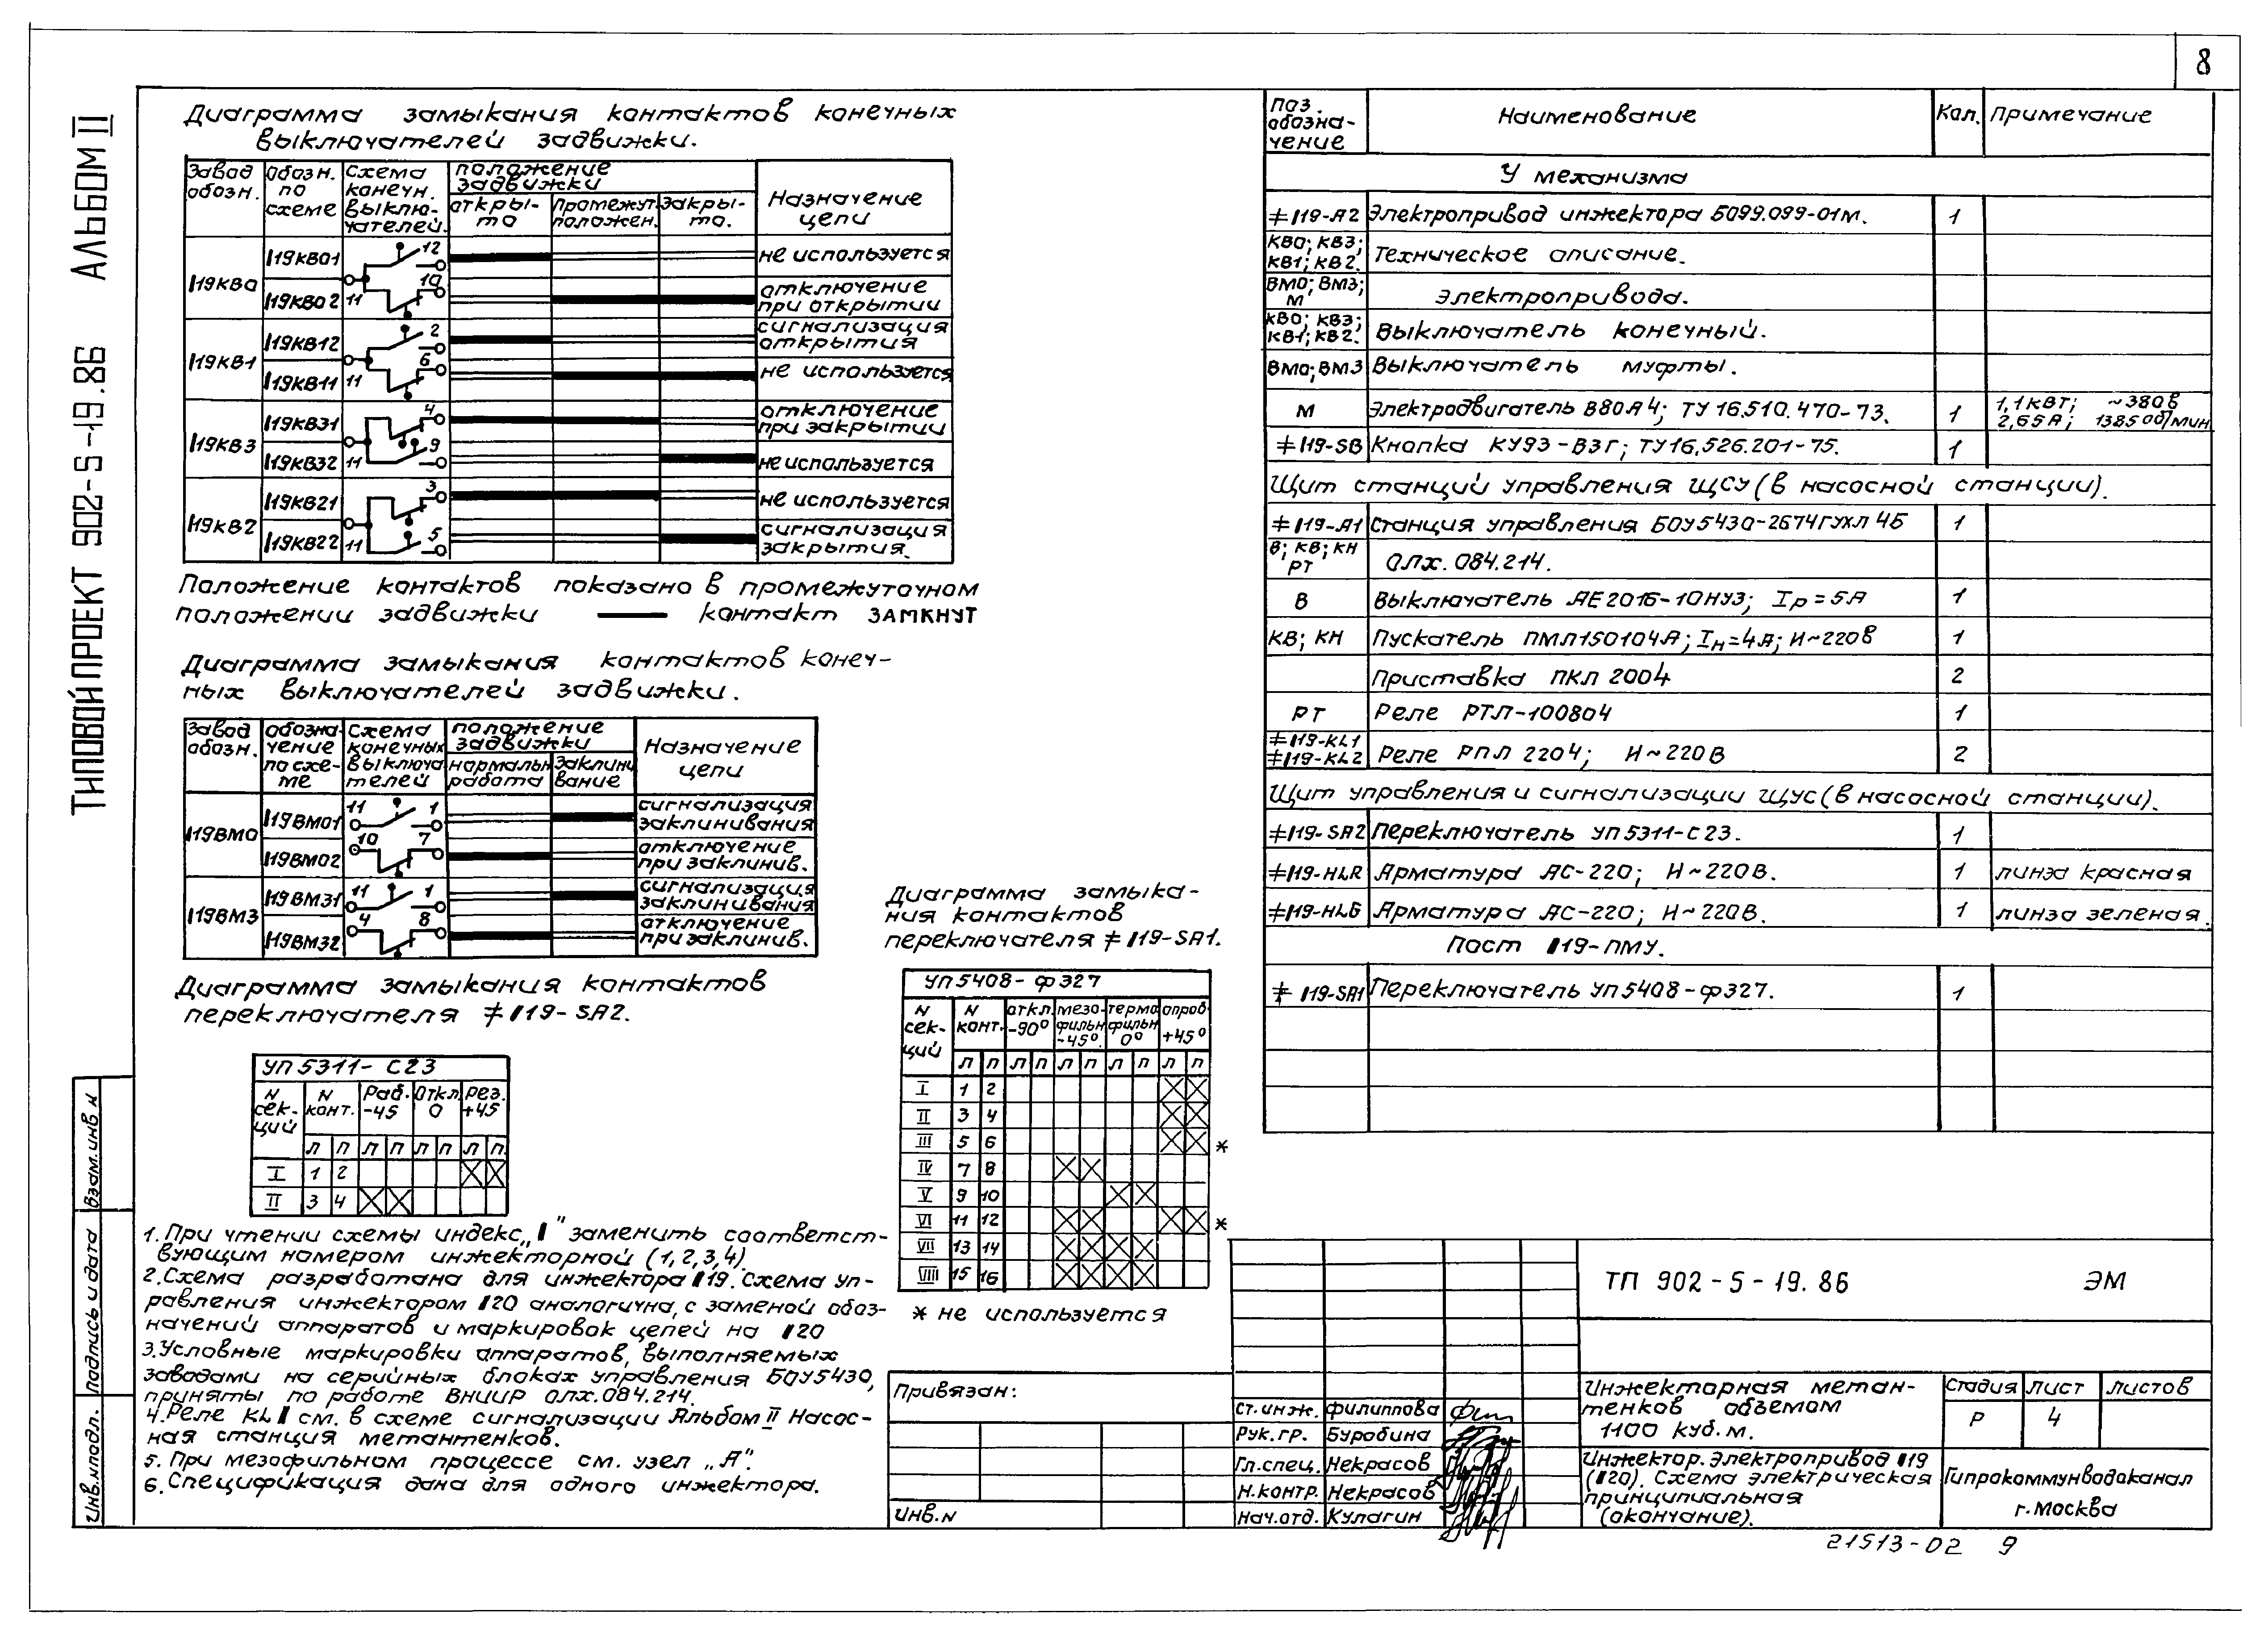 8
ТИПОВОЙ ПРОЕКТ 902-5-19.86 АЛЬБОМ II
Диаграмма замыкания контактов конечных
выключателей задвижки.
Завод обозн. | Обозн. по схеме | Схема конечн. выключателей. | положение задвижки | Назначение цепи
откры-то | Промежут. положен. | Закры-то.
I19КВО | I19КВ01 | 12 | не используется
I19КВ02 | 11 | 10 | отключение при открытии
I19КВ1 | I19КВ12 | 2 | сигнализация открытия
I19КВ11 | 11 | 6 | не используется
I19КВ3 | I19КВ31 | 4 | отключение при закрытии
I19КВ32 | 11 | 9 | не используется
I19КВ2 | I19КВ21 | 3 | не используется
I19КВ22 | 11 | 5 | сигнализация закрытия.
Положение контактов показано в промежуточном
положении задвижки — контакт ЗАМКНУТ
Диаграмма замыкания контактов конеч-
ных выключателей задвижки.
Завод обозн. | обозначение по схе-ме | Схема конечных выключателей | положение задвижки | Назначение цепи
нормальн работа | Заклинивание
I19ВМО | I19ВМ01 | 11 | 1 | сигнализация заклинивания
I19ВМ02 | 10 | 7 | отключение при заклинив.
I19ВМ3 | I19ВМ31 | 11 | 1 | сигнализация заклинивания
I19ВМ32 | 4 | 8 | отключение при заклинив.
Диаграмма замыкания контактов
переключателя ≠I19-SA2.
УП5311-С23
N сек-ций | N конт. | Раб. -45 | Откл. 0 | Рез. +45
Л П Л П Л П Л П
I 1 2
II 3 4
Диаграмма замыка-
ния контактов
переключателя ≠I19-SA1.
УП5408-Ф327
N сек-ций | N конт. | откл. -90° | мезо-фильн -45° | термо фильн 0° | опроб. +45°
Л П Л П Л П Л П Л П
I 1 2
II 3 4
III 5 6 *
IV 7 8
V 9 10
VI 11 12 *
VII 13 14
VIII 15 16
* не используется
1. При чтении схемы индекс „I" заменить соответст-
вующим номером инжекторной (1,2,3,4).
2. Схема разработана для инжектора I19. Схема уп-
равления инжектором I20 аналогична, с заменой обоз-
начений аппаратов и маркировок цепей на I20
3. Условные маркировки аппаратов, выполняемых
заводами на серийных блоках управления БОУ5430,
приняты по работе ВНИИР ОЛХ.084.214.
4. Реле KLI см. в схеме сигнализации Альбом II Насос-
ная станция метантенков.
5. При мезофильном процессе см. узел „А".
6. Спецификация дана для одного инжектора.
Поз. обозна-чение | Наименование | Кол. | Примечание
У механизма
≠I19-A2 | Электропривод инжектора Б099.099-01м. | 1
КВО; КВ3; КВ1; КВ2. | Техническое описание.
ВМО; ВМ3; М | Электропривода.
КВО; КВ3; КВ1; КВ2. | Выключатель конечный.
ВМО; ВМ3 | Выключатель муфты.
М | Электродвигатель В80А4; ТУ 16.510.470-73. | 1 | 1,1 кВт; ~380В 2,65А; 1385об/мин
≠I19-SB | Кнопка КУ93-В3Г; ТУ16.526.201-75. | 1
Щит станций управления ЩСУ (в насосной станции).
≠I19-A1 | Станция управления БОУ5430-2674ГУХЛ4Б | 1
В; КВ; КН РТ | ОЛХ.084.214.
В | Выключатель АЕ2016-10НУ3; Iр=5А | 1
КВ; КН | Пускатель ПМЛ150104А; Iн=4А; И~220В | 1
Приставка ПКЛ 2004 | 2
РТ | Реле РТЛ-100804 | 1
≠I19-KL1 ≠I19-KL2 | Реле РПЛ 2204; И~220В | 2
Щит управления и сигнализации ЩУС (в насосной станции).
≠I19-SA2 | Переключатель УП5311-С23. | 1
≠I19-HLR | Арматура АС-220; И~220В. | 1 | линза красная
≠I19-HLG | Арматура АС-220; И~220В. | 1 | линза зеленая.
Пост I19-ПМУ.
≠I19-SA1 | Переключатель УП5408-Ф327. | 1
Привязан:
Инв.N
ст.инж. Филиппова
Рук.гр. Буробина
Гл.спец. Некрасов
Н.контр. Некрасов
Нач.отд. Кулагин
ТП 902-5-19.86 ЭМ
Инжекторная метан-
тенков объемом
1100 куб.м.
Стадия Лист Листов
Р 4
Инжектор. Электропривод I19
(I20). Схема электрическая
принципиальная
(окончание).
Гипрокоммунводоканал
г. Москва
21513-02 9
Инв.Nподл. Подпись и дата Взам.инв N